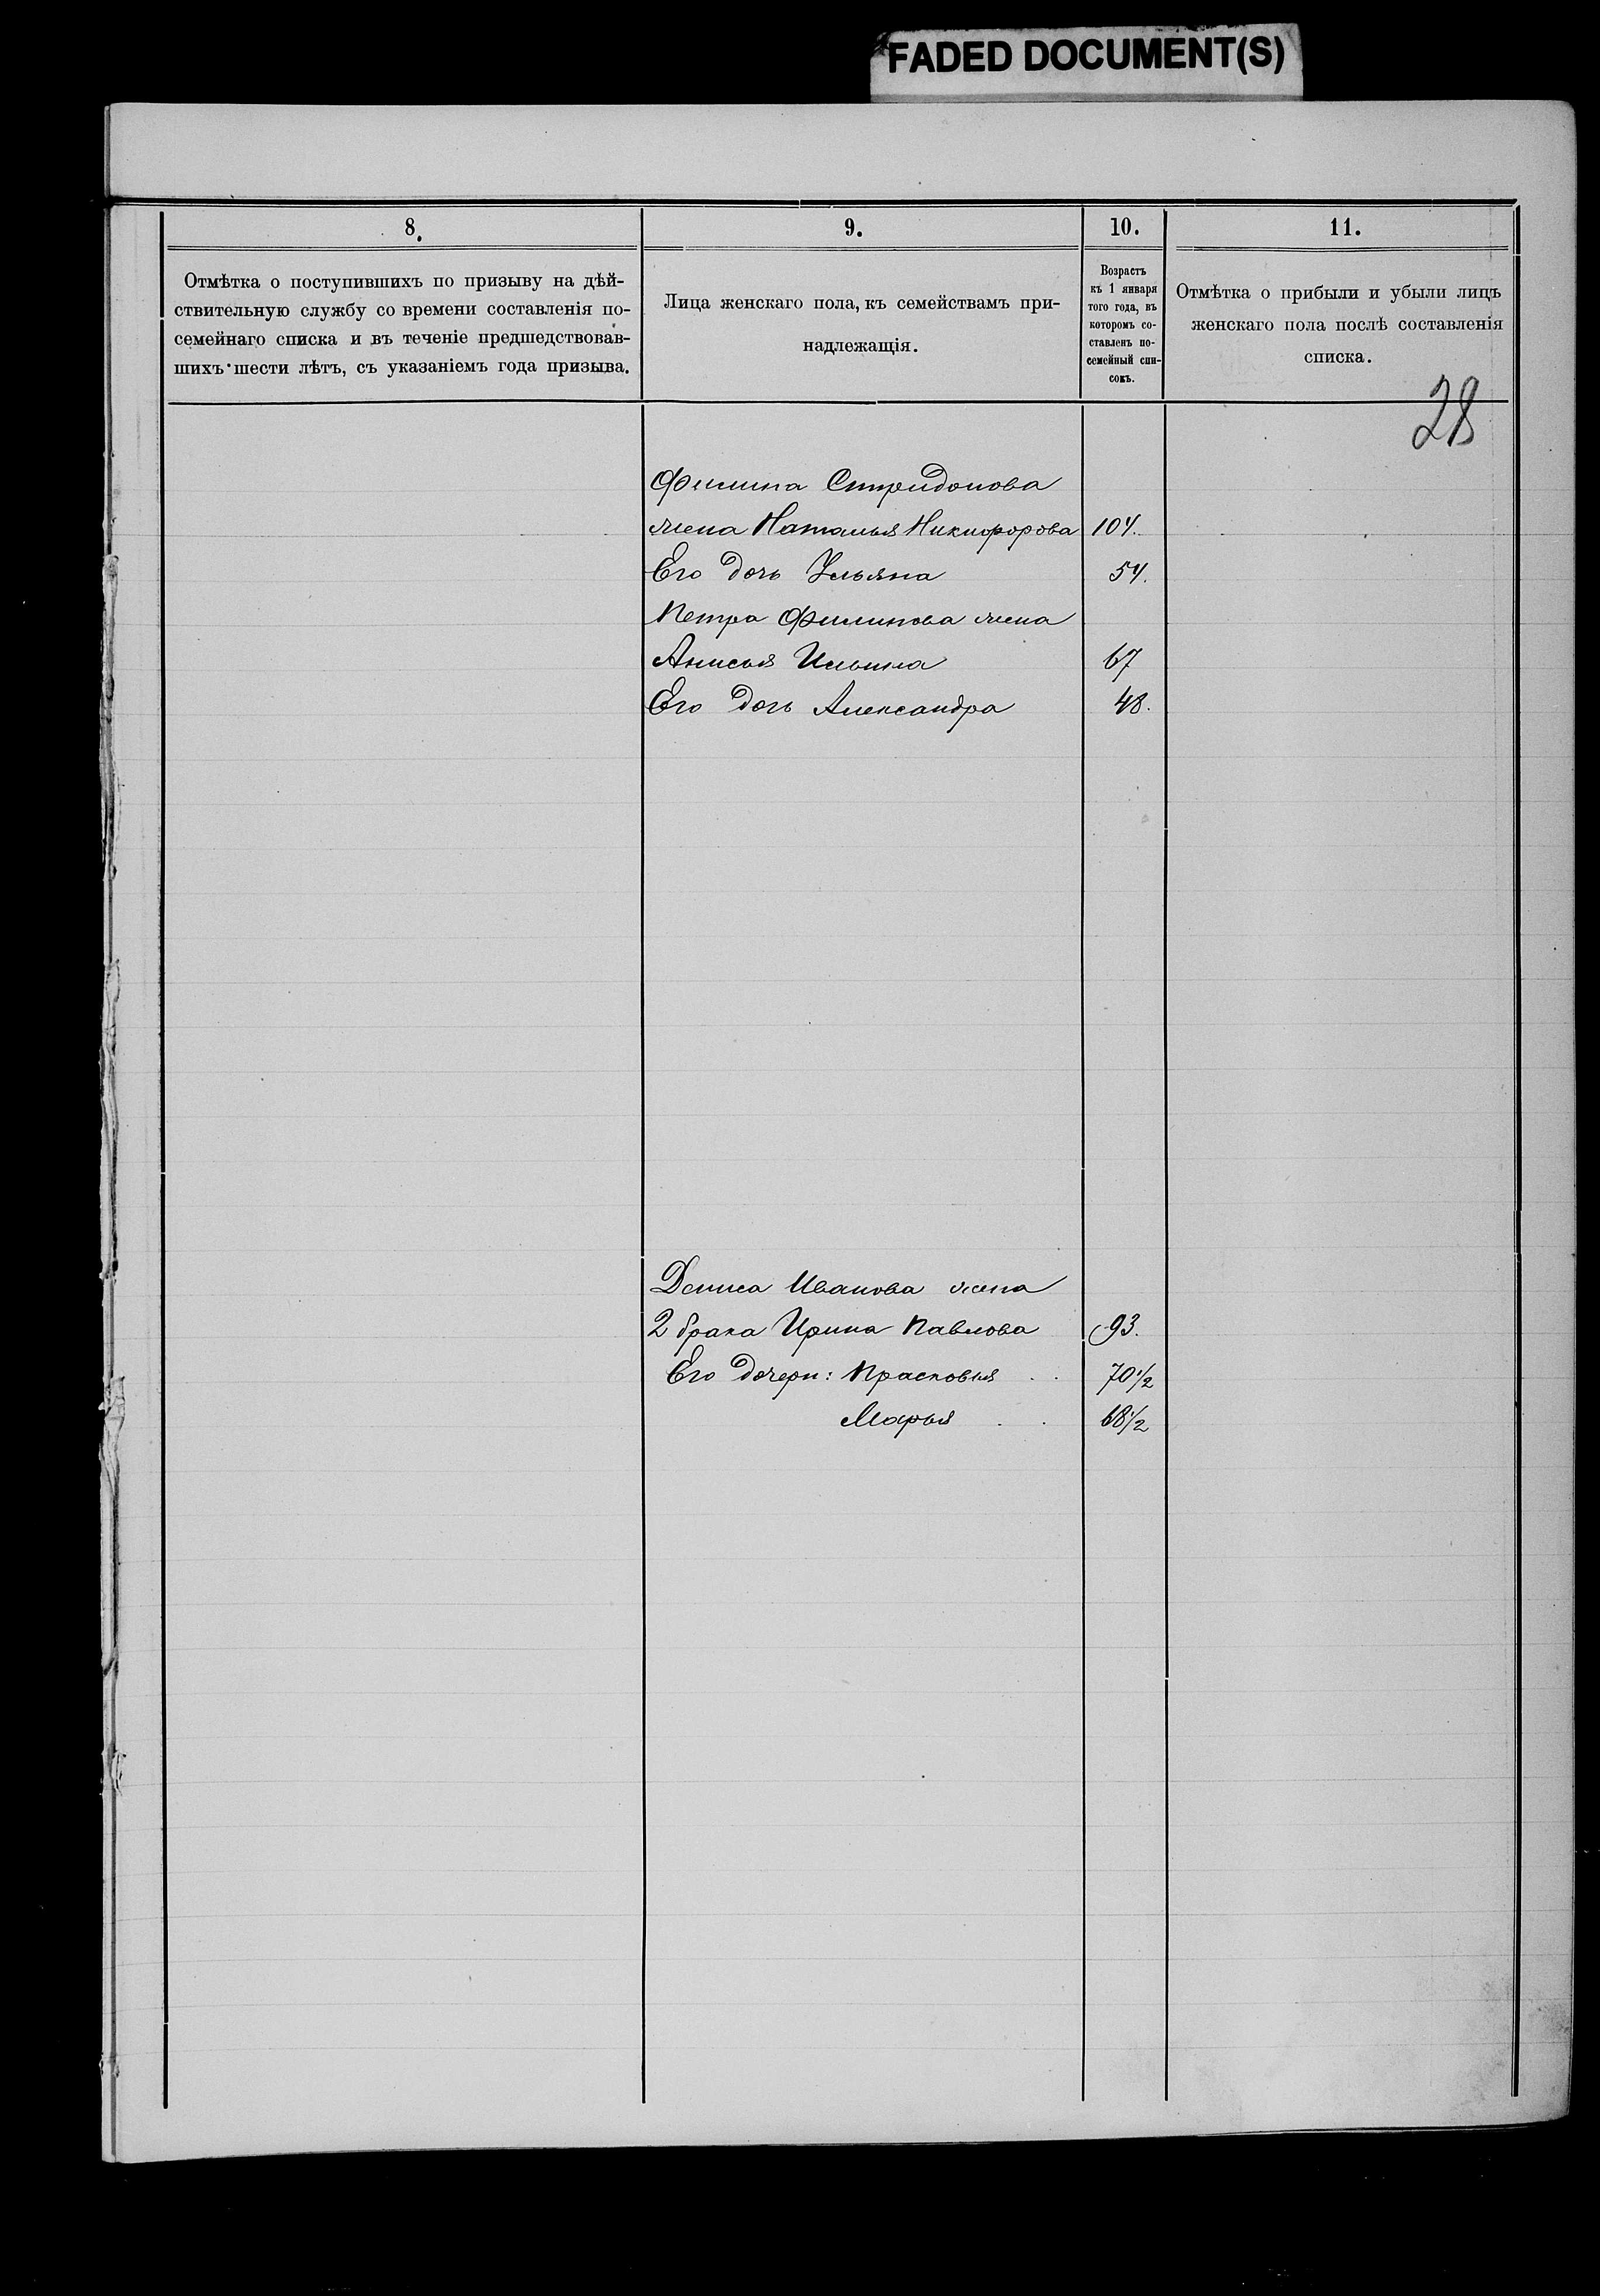 FADED DOCUMENT(S)
8.
Отмѣтка о поступившихъ по призыву на дѣй-
ствительную службу со времени составленія по-
семейнаго списка и въ теченіе предшедствовав-
шихъ шести лѣтъ, съ указаніемъ года призыва.
9.
Лица женскаго пола, къ семействамъ при-
надлежащія.
10.
Возрастъ
къ 1 января
того года, въ
которомъ со-
ставленъ по-
семейный спи-
сокъ.
11.
Отмѣтка о прибыли и убыли лицъ
женскаго пола послѣ составленія
списка.
28
Филипа Спиридонова
жена Наталья Никифорова 104.
Его дочь Ульяна 54.
Петра Филипова жена
Анисья Ильина 67
Его дочь Александра 48.
Дениса Иванова жена
2 брака Ирина Павлова 93.
Его дочери: Прасковья . . 70 1/2
Марья . . 68 1/2